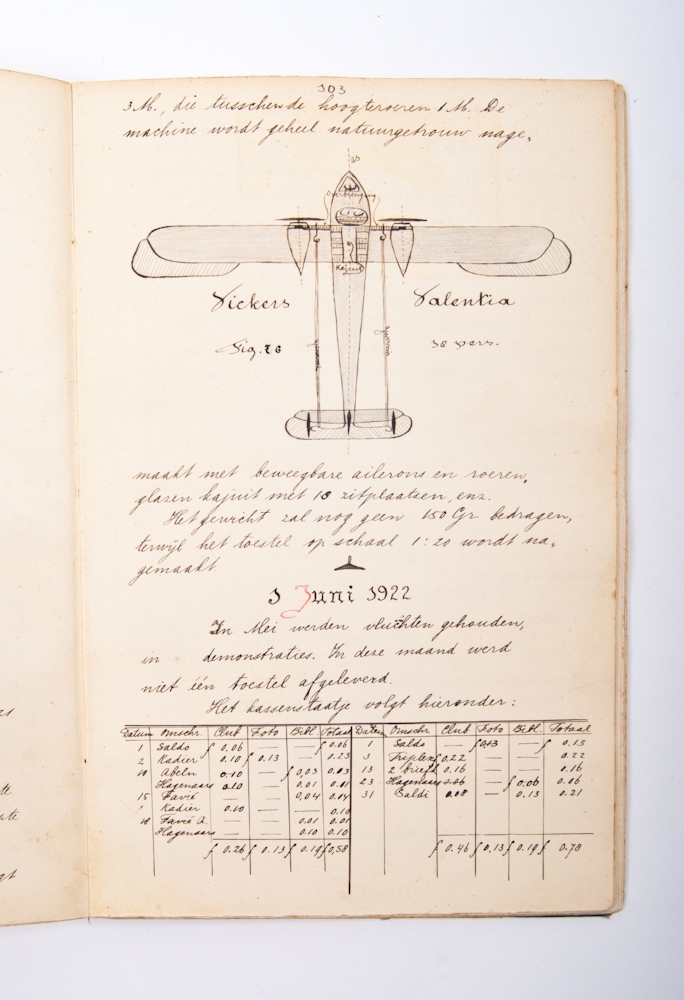 303
3 M., die tusschende hoogteroeren 1 M. De
machine wordt geheel natuurgetrouw nage,
as
Kajuit
Vickers Valentia
Fig. 26 pers.
maakt met beweegbare ailerons en roeren,
glazen kajuit met 18 zitplaatsen, enz.
Het gewicht zal nog geen 150 Gr. bedragen,
terwijl het toestel op schaal 1:20 wordt na,
gemaakt.
1 Juni 1922
In Mei werden vluchten gehouden,
in demonstraties. In deze maand werd
niet één toestel afgeleverd.
Het kassenstaatje volgt hieronder:
Datum Omschr. Club Foto Bibl. Totaal Datum Omschr. Club Foto Bibl. Totaal
1 Saldo f 0.06 — — f 0.06 1 Saldo — f 0,13 — f 0.13
2 Kadier 0.10 f 0.13 — 1.23 3 Triplex f 0,22 — — 0.22
10 Abeln 0.10 — f 0,03 0.13 2 0.16 — — 0.16
Hagenaars 0.10 — 0.01 0.11 23 Hagenaars — f 0.06 0.06
15 Favié — — 0,04 0.04 31 Saldi 0.08 — 0.13 0.21
" Kadier 0.10 — — 0.10
18 Favié A. — — 0.01 0.01
Hagenaars — — 0.10 0.10
f 0.26 f 0.13 f 0.19 f 0,58 f 0.46 f 0,13 f 0.19 f 0.78